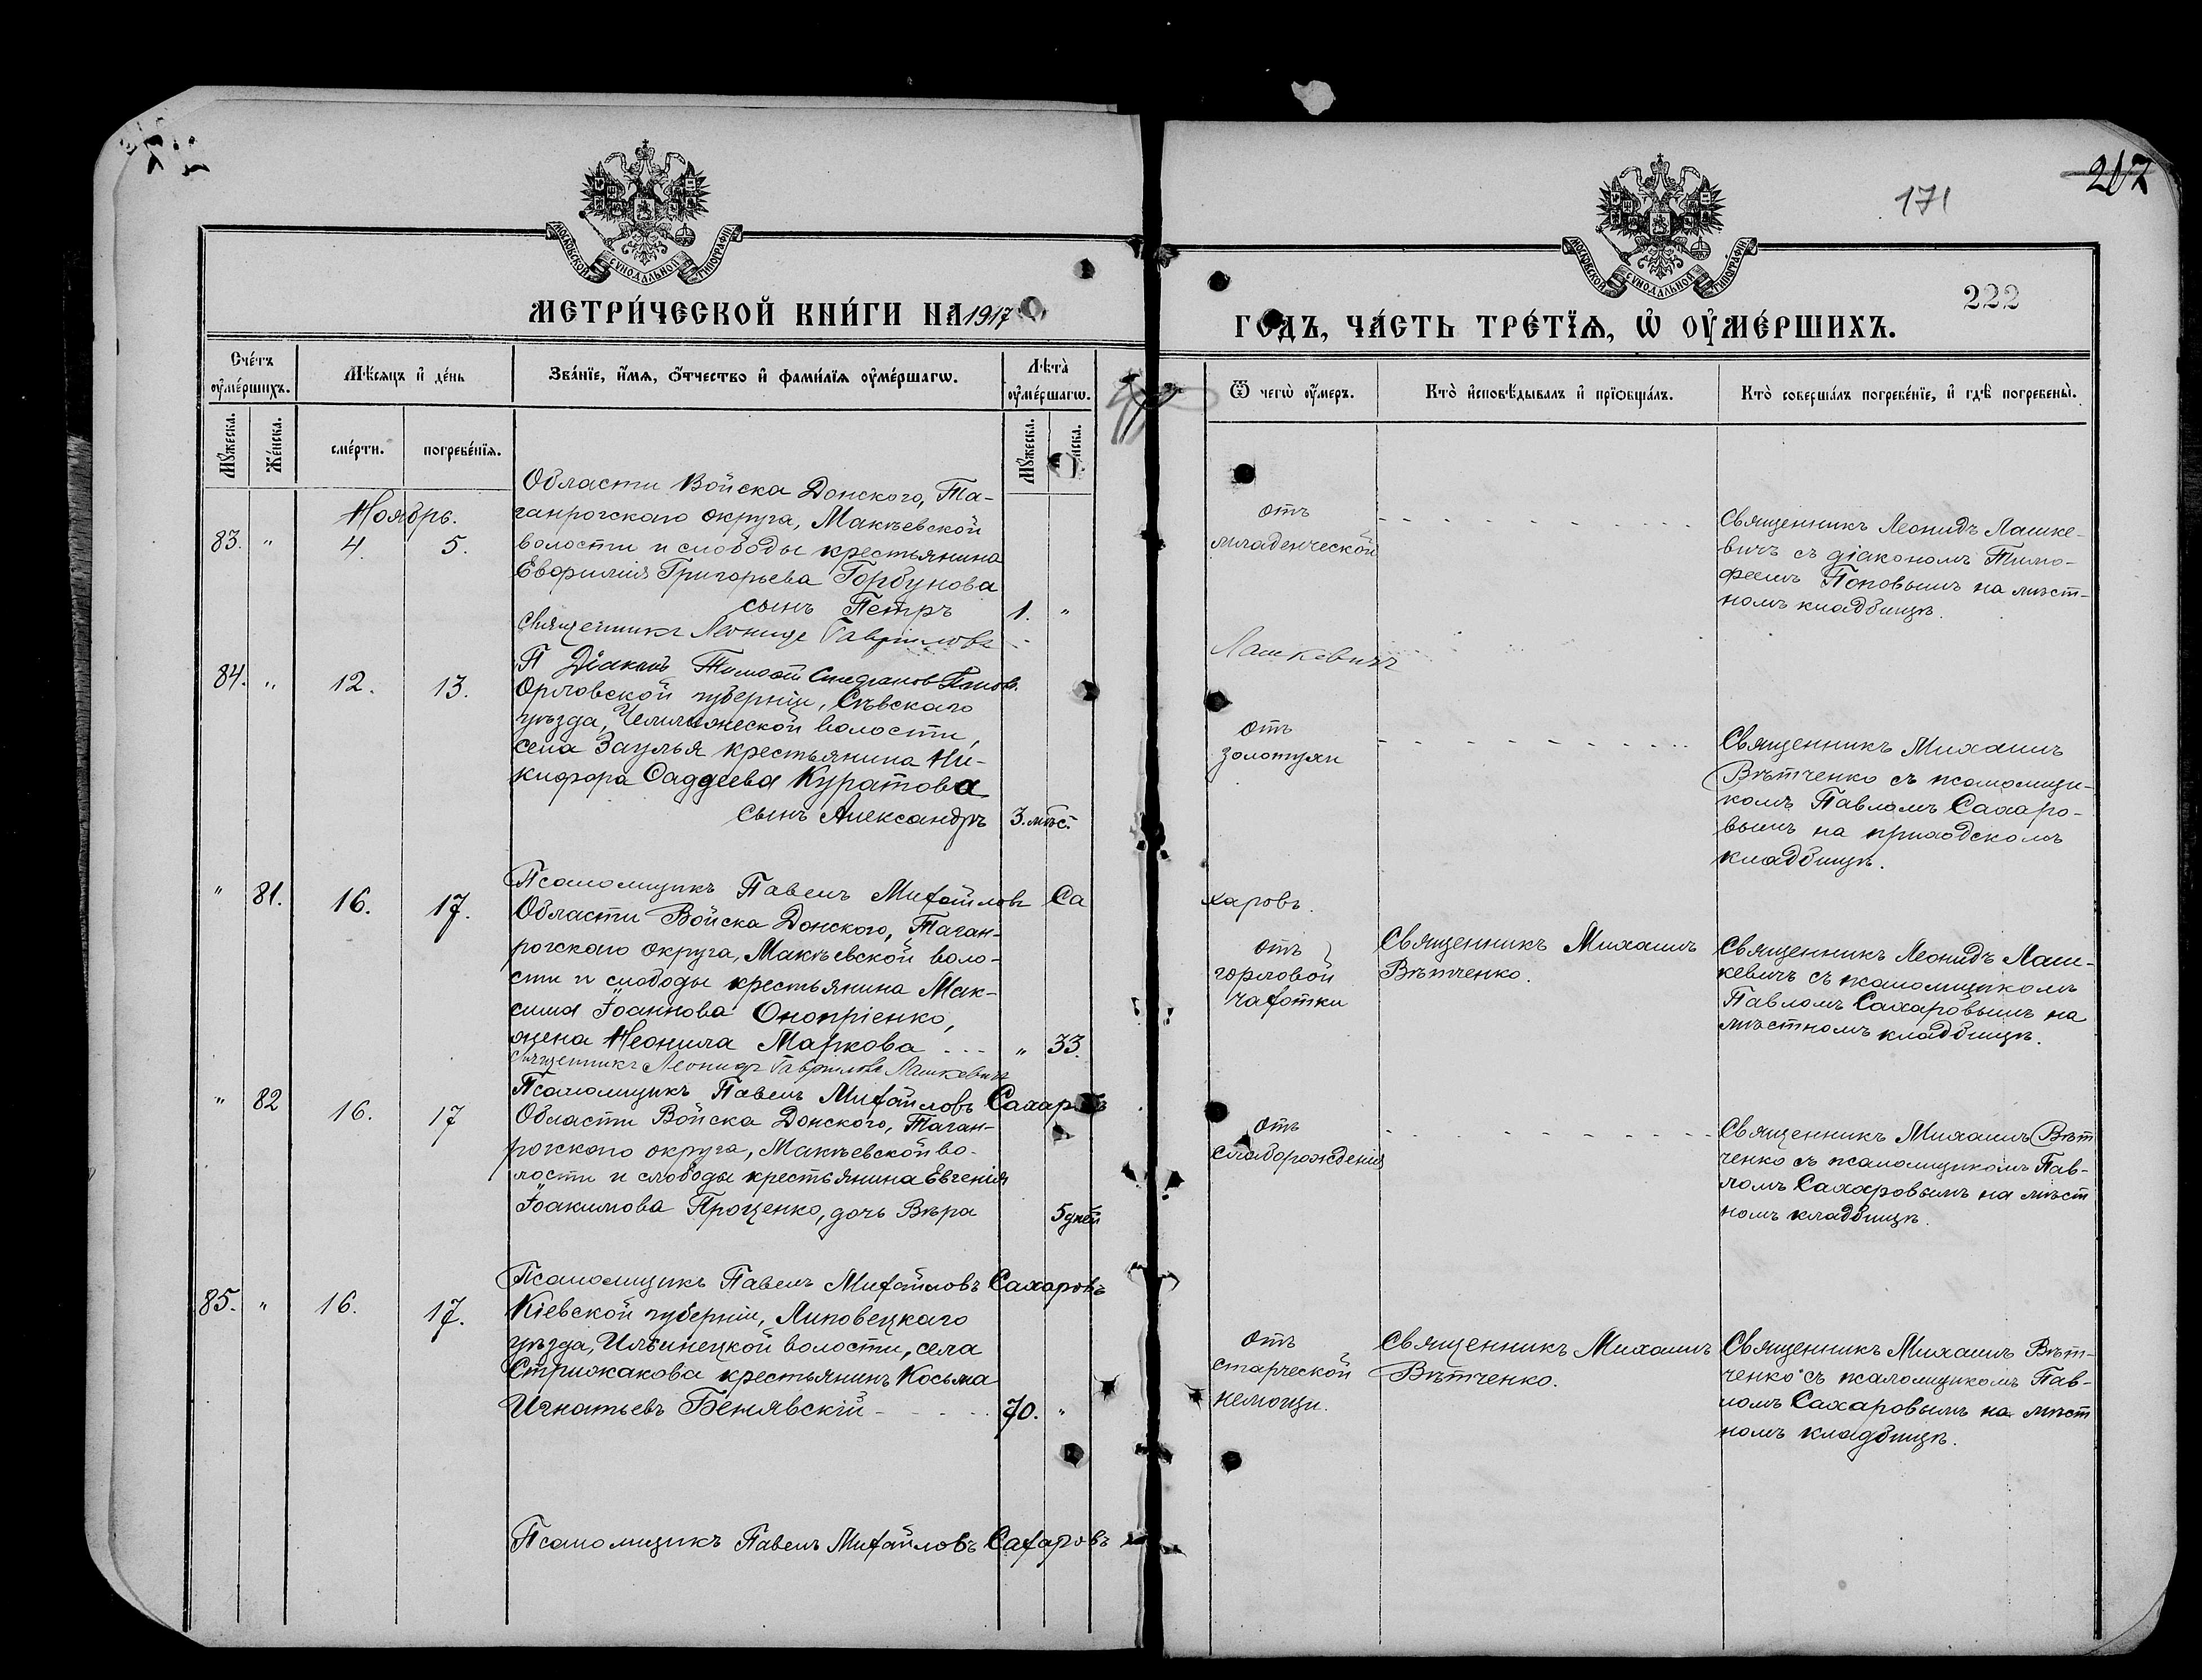 207
171
222
МОСКОВСКОЙ СѴНОДАЛЬНОЙ ТИПОГРАФІИ
МОСКОВСКОЙ СѴНОДАЛЬНОЙ ТИПОГРАФІИ
МЕТРИ́ЧЕСКОЙ КНИ́ГИ НА 1917
ГОДЪ, ЧА́СТЬ ТРЕ́ТЇѦ, Ѡ҆ ОУ҆МЕ́РШИХЪ.
Сче́тъ оу҆ме́ршихъ.
Мѣ́сѧцъ и҆ де́нь
Зва́нїе, и҆́мѧ, ѻ҆́тчество и҆ фами́лїѧ оу҆ме́ршагѡ.
Лѣ́та̀ оу҆ме́ршагѡ.
Ѿ чегѡ̀ оу҆́меръ.
Кто̀ и҆сповѣ́дывалъ и҆ прїѡбща́лъ.
Кто̀ соверша́лъ погребе́нїе, и҆ гдѣ̀ погребены̀.
Мꙋ́жеска.
Же́нска.
сме́рти.
погребе́нїѧ.
Мꙋ́жеска.
нска.
Ноябрь.
83. " 4. 5.
Области Войска Донского, Та-
ганрогскаго округа, Макѣевской
волости и слободы крестьянина
Евфимія Григорьева Горбунова
сынъ Петръ 1. "
отъ
младенческой
Священникъ Леонидъ Лашке-
вичъ съ діакономъ Тимо-
феемъ Поповымъ на мѣст-
номъ кладбищѣ.
Священникъ Леонидъ Гавриловъ Лашкевичъ
Діаконъ Тимоѳей Стефановъ Поповъ.
84. " 12. 13.
Орловской губерніи, Сѣвскаго
уѣзда, волости,
села Заулья крестьянина Ни-
кифора Фаддеева Куратова
сынъ Александръ 3. мѣс.
отъ
золотухи
Священникъ Михаилъ
Вѣтченко съ псаломщи-
комъ Павломъ Сахаро-
вымъ на приходскомъ
кладбищѣ.
Псаломщикъ Павелъ Михайловъ Сахаровъ.
" 81. 16. 17.
Области Войска Донского, Таган-
рогскаго округа, Макѣевской воло-
сти и слободы крестьянина Мак-
сима Іоаннова Оноприенко,
жена Неонила Маркова " 33.
отъ
горловой
чахотки
Священникъ Михаилъ
Вѣтченко.
Священникъ Леонидъ Лаш-
кевичъ съ псаломщикомъ
Павломъ Сахаровымъ на
мѣстномъ кладбищѣ.
Священникъ Леонидъ Гавриловъ Лашкевичъ
Псаломщикъ Павелъ Михайловъ Сахаровъ
" 82 16. 17
Области Войска Донского, Таган-
рогскаго округа, Макѣевской во-
лости и слободы крестьянина Евгенія
Іоакимова Проценко, дочь Вѣра 5 дней
отъ
слаборожденія
Священникъ Михаилъ Вѣт
ченко съ псаломщикомъ Пав-
ломъ Сахаровымъ на мѣст
номъ кладбищѣ.
Псаломщикъ Павелъ Михайловъ Сахаровъ
85. " 16. 17.
Кіевской губерніи, Липовецкаго
уѣзда, Ильинецкой волости, села
Стрижакова крестьянинъ Косьма
Игнатьевъ Бенявскій 70. "
отъ
старческой
немощи.
Священникъ Михаилъ
Вѣтченко.
Священникъ Михаилъ Вѣт-
ченко съ псаломщикомъ Пав-
ломъ Сахаровымъ на мѣст
номъ кладбищѣ.
Псаломщикъ Павелъ Михайловъ Сахаровъ